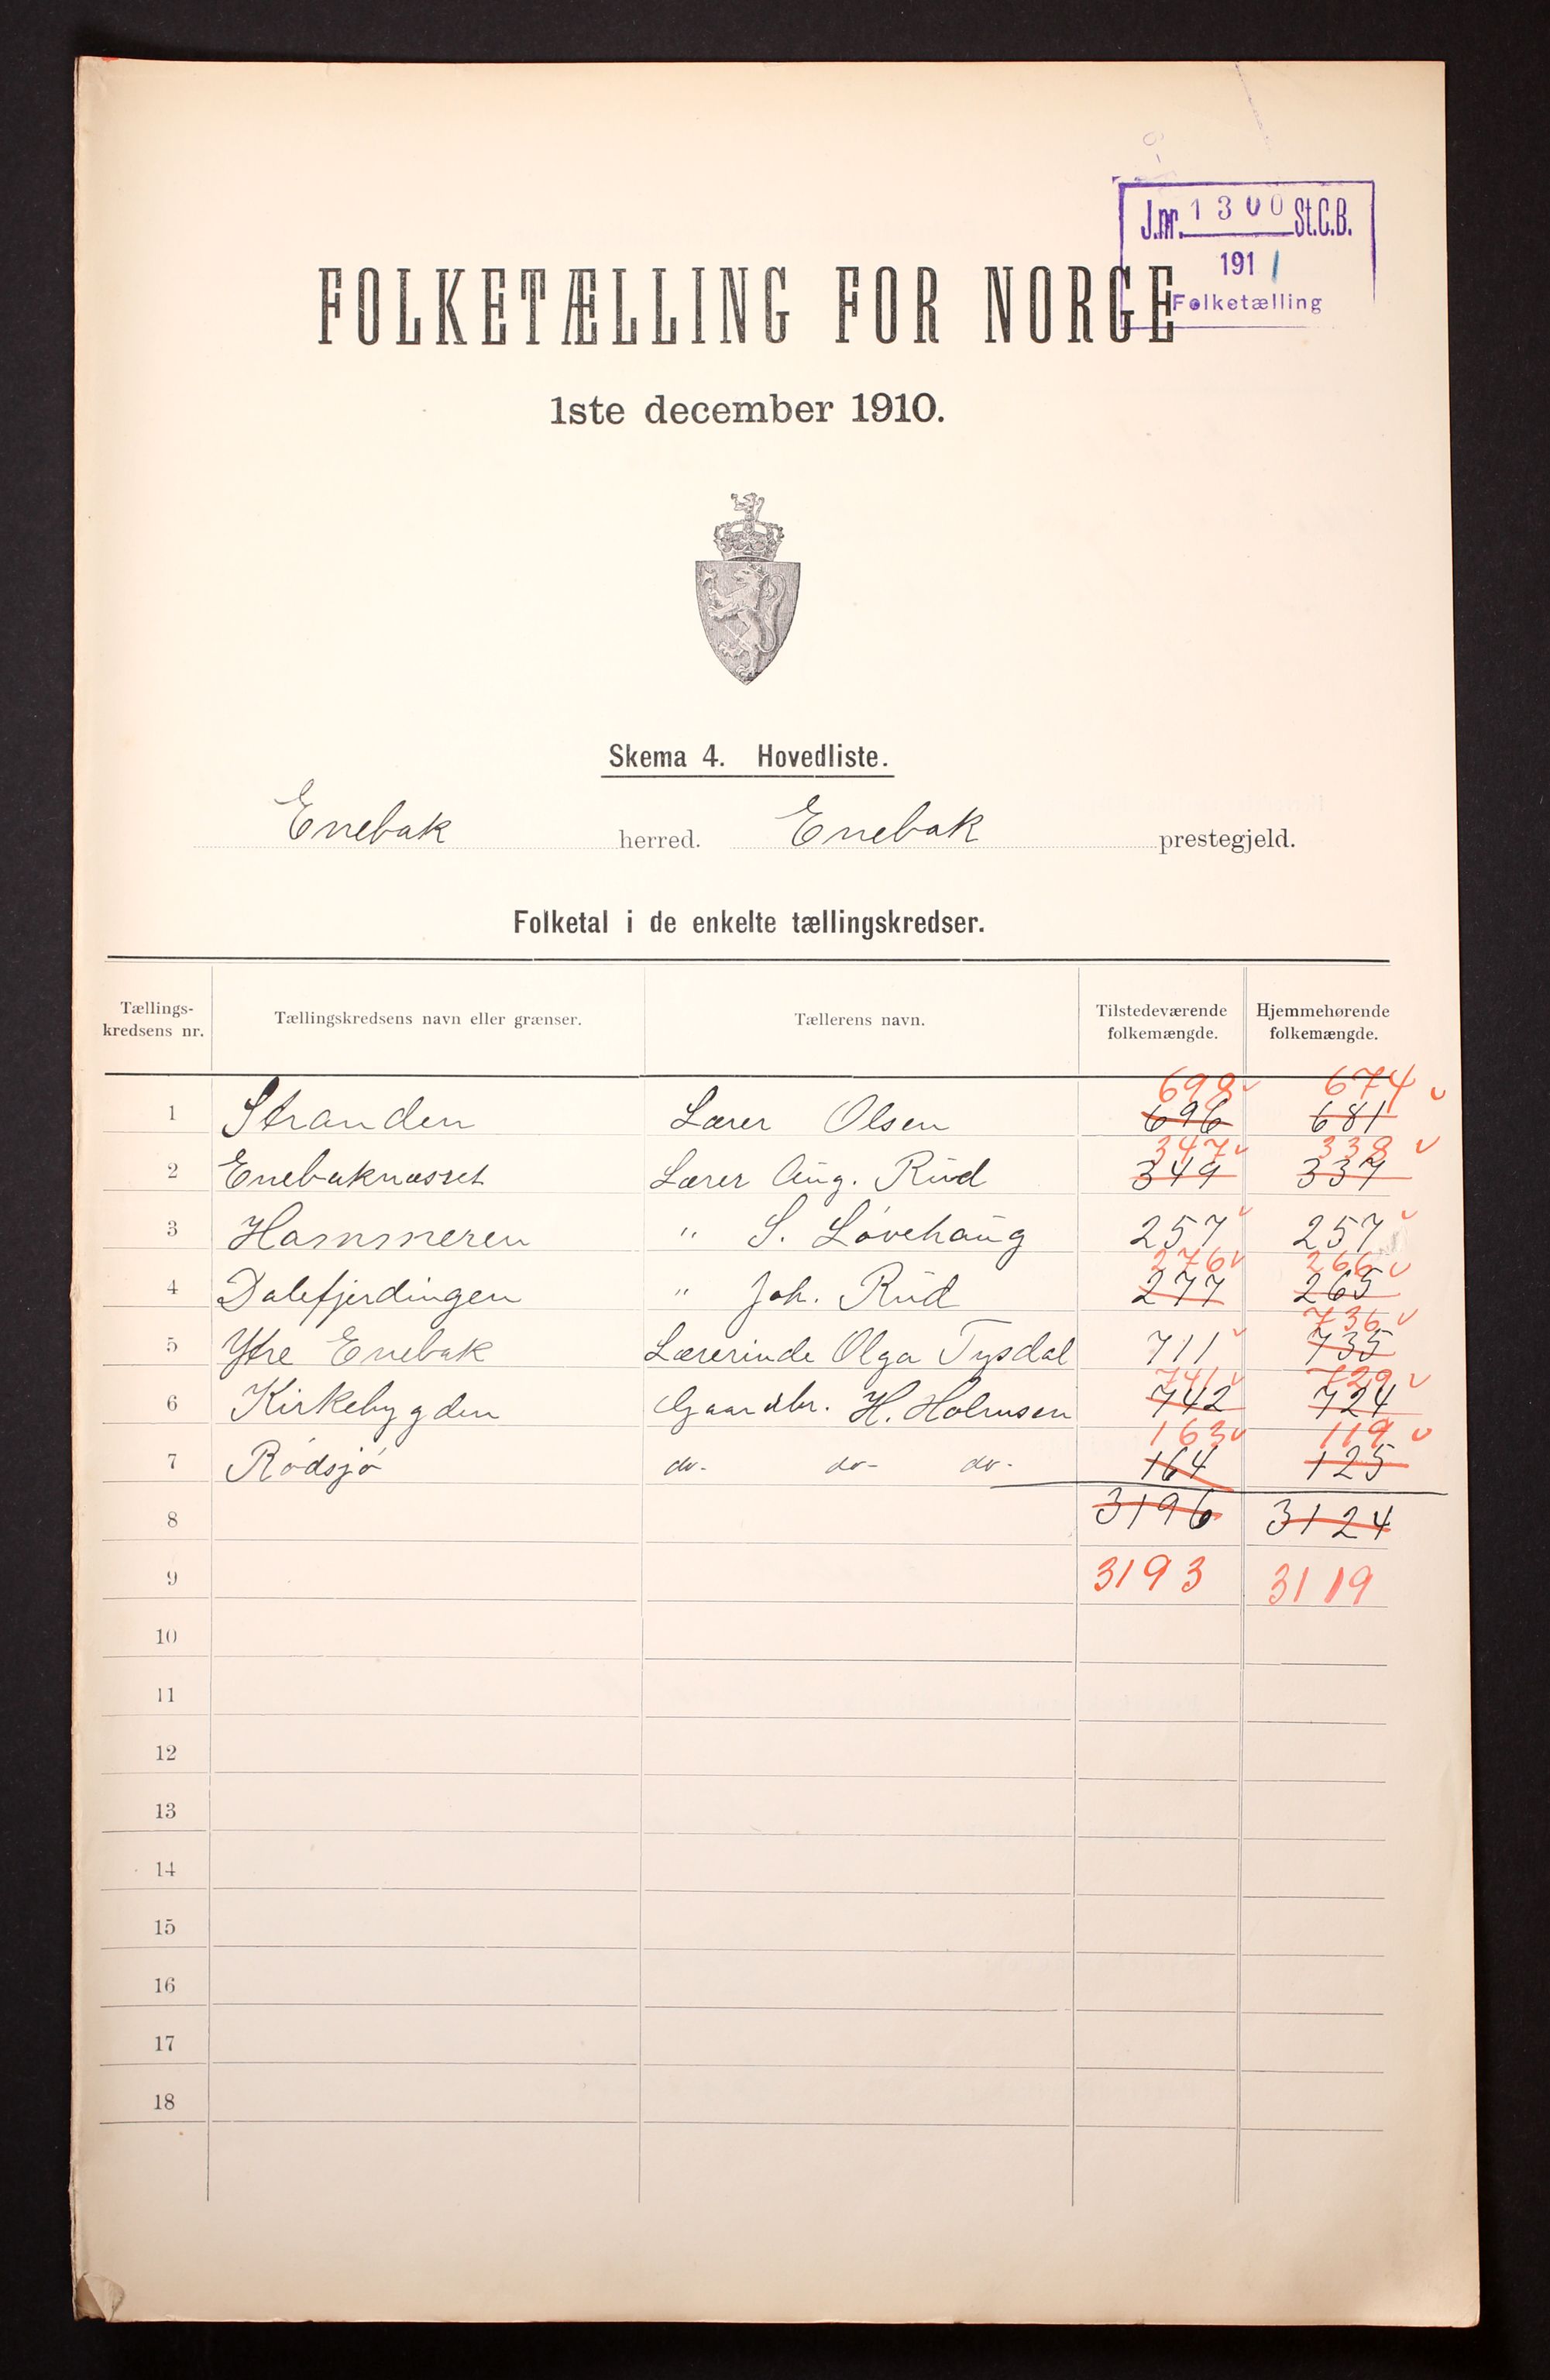 J.nr. 1300 St.C.B.
1911
Folketælling
FOLKETÆLLING FOR NORGE
1ste december 1910.
Skema 4. Hovedliste.
Enebak herred. Enebak prestegjeld.
Folketal i de enkelte tællingskredser.
Tællings-
kredsens nr.
Tællingskredsens navn eller grænser.
Tællerens navn.
Tilstedeværende
folkemængde.
Hjemmehørende
folkemængde.
698 674
1 Stranden Lærer Olsen 696 681
347 338
2 Enebaknæsset Lærer Aug. Rud 349 337
3 Hammeren " S. Løvehaug 257 257
276 266
4 Dalefjerdingen " Joh. Rud 277 265
736
5 Ytre Enebak Lærerinde Olga Tysdal 711 735
741 729
6 Kirkebygden Gaardbr. H. Holmsen 742 724
163 119
7 Rødsjø do- do- do- 164 125
8 3196 3124
9 3193 3119
10
11
12
13
14
15
16
17
18